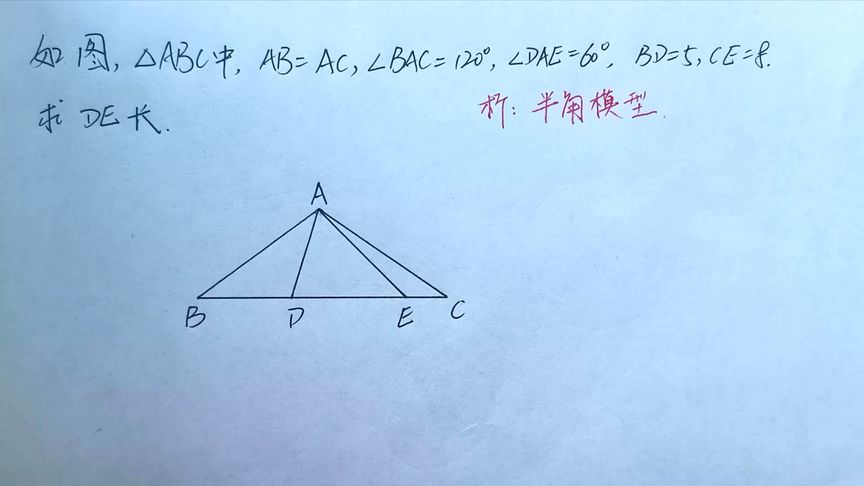 如图, △ABC中, AB=AC, ∠BAC=120°, ∠DAE=60°, BD=5, CE=8.
求 DE 长.
析: 半角模型.
A
B D E C